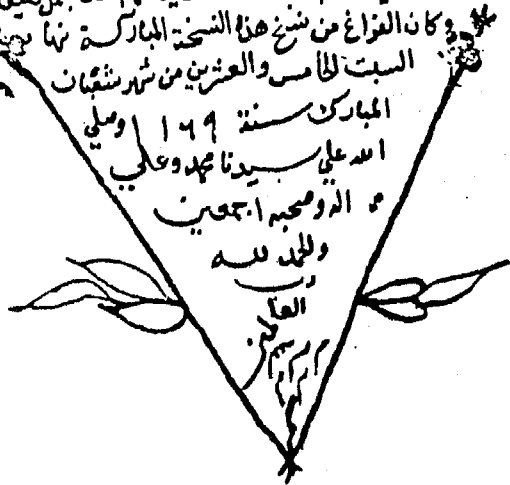 وكان الفراغ من نسخ هذا النسخة المباركة نهار
السبت الخامس والعشرين من شهر شعبان
المبارك سنة ١١٦٩ وصلي
الله علي سيدنا محمد وعلي
اله وصحبه اجمعين
والحمد لله
رب
العا
لمين